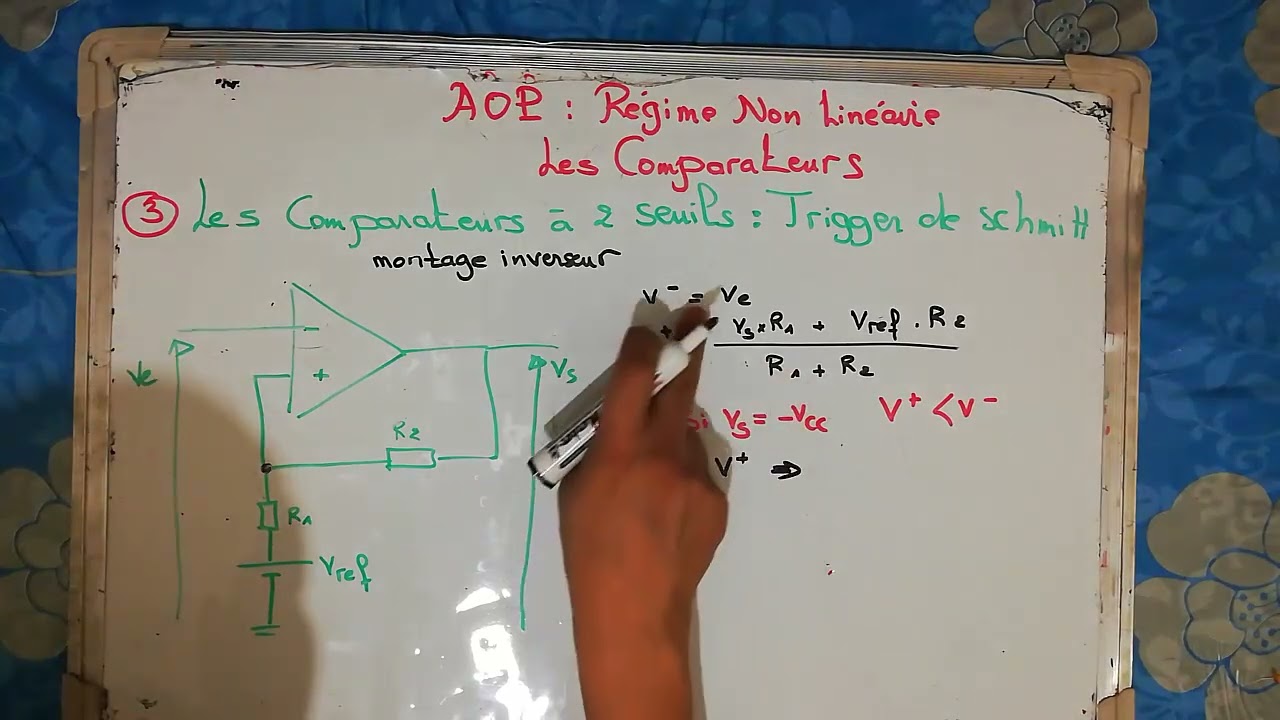 AOP : Régime Non Linéaire
Les Comparateurs
③ Les Comparateurs à 2 seuils : Trigger de schmitt
montage inverseur
V⁻ = Ve
Vs×R1 + Vref . R2
R1 + R2
si Vs = -Vcc V⁺ < V⁻
V⁺ ⇒
Ve
-
+
Vs
R2
R1
Vref